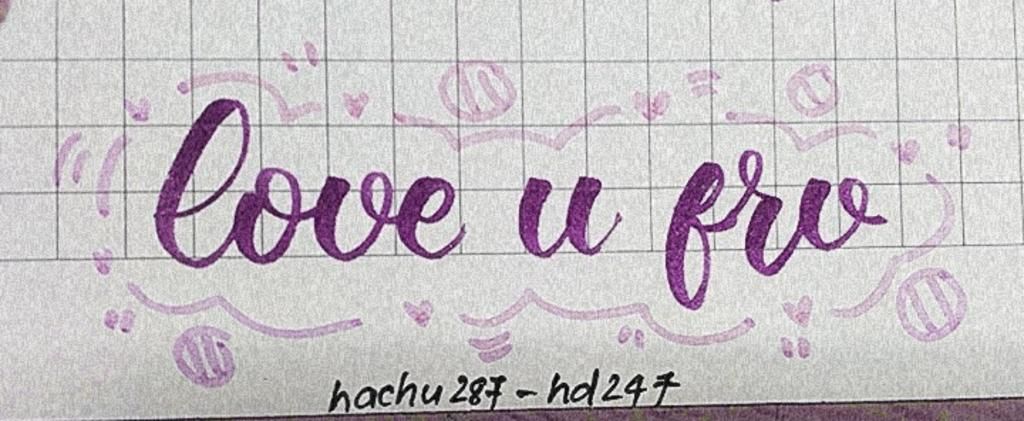 love u frv
hachu287 - hd247